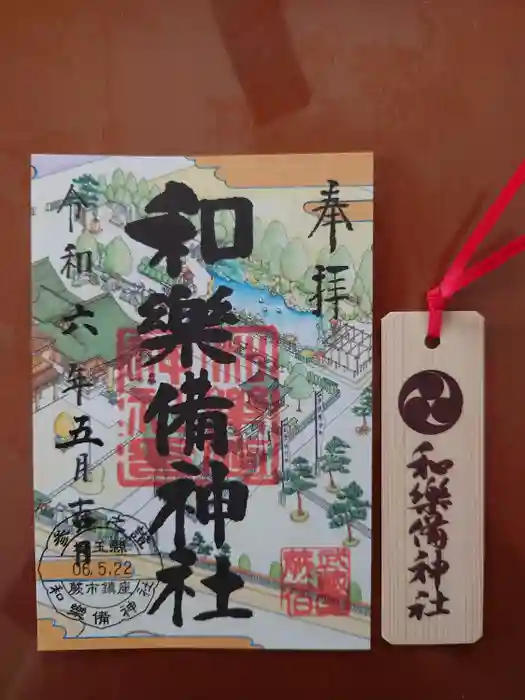 奉拝
和樂備神社
令和六年五月吉日
埼玉縣
06.5.22
蕨市鎮座
和樂備神社
和樂備神社